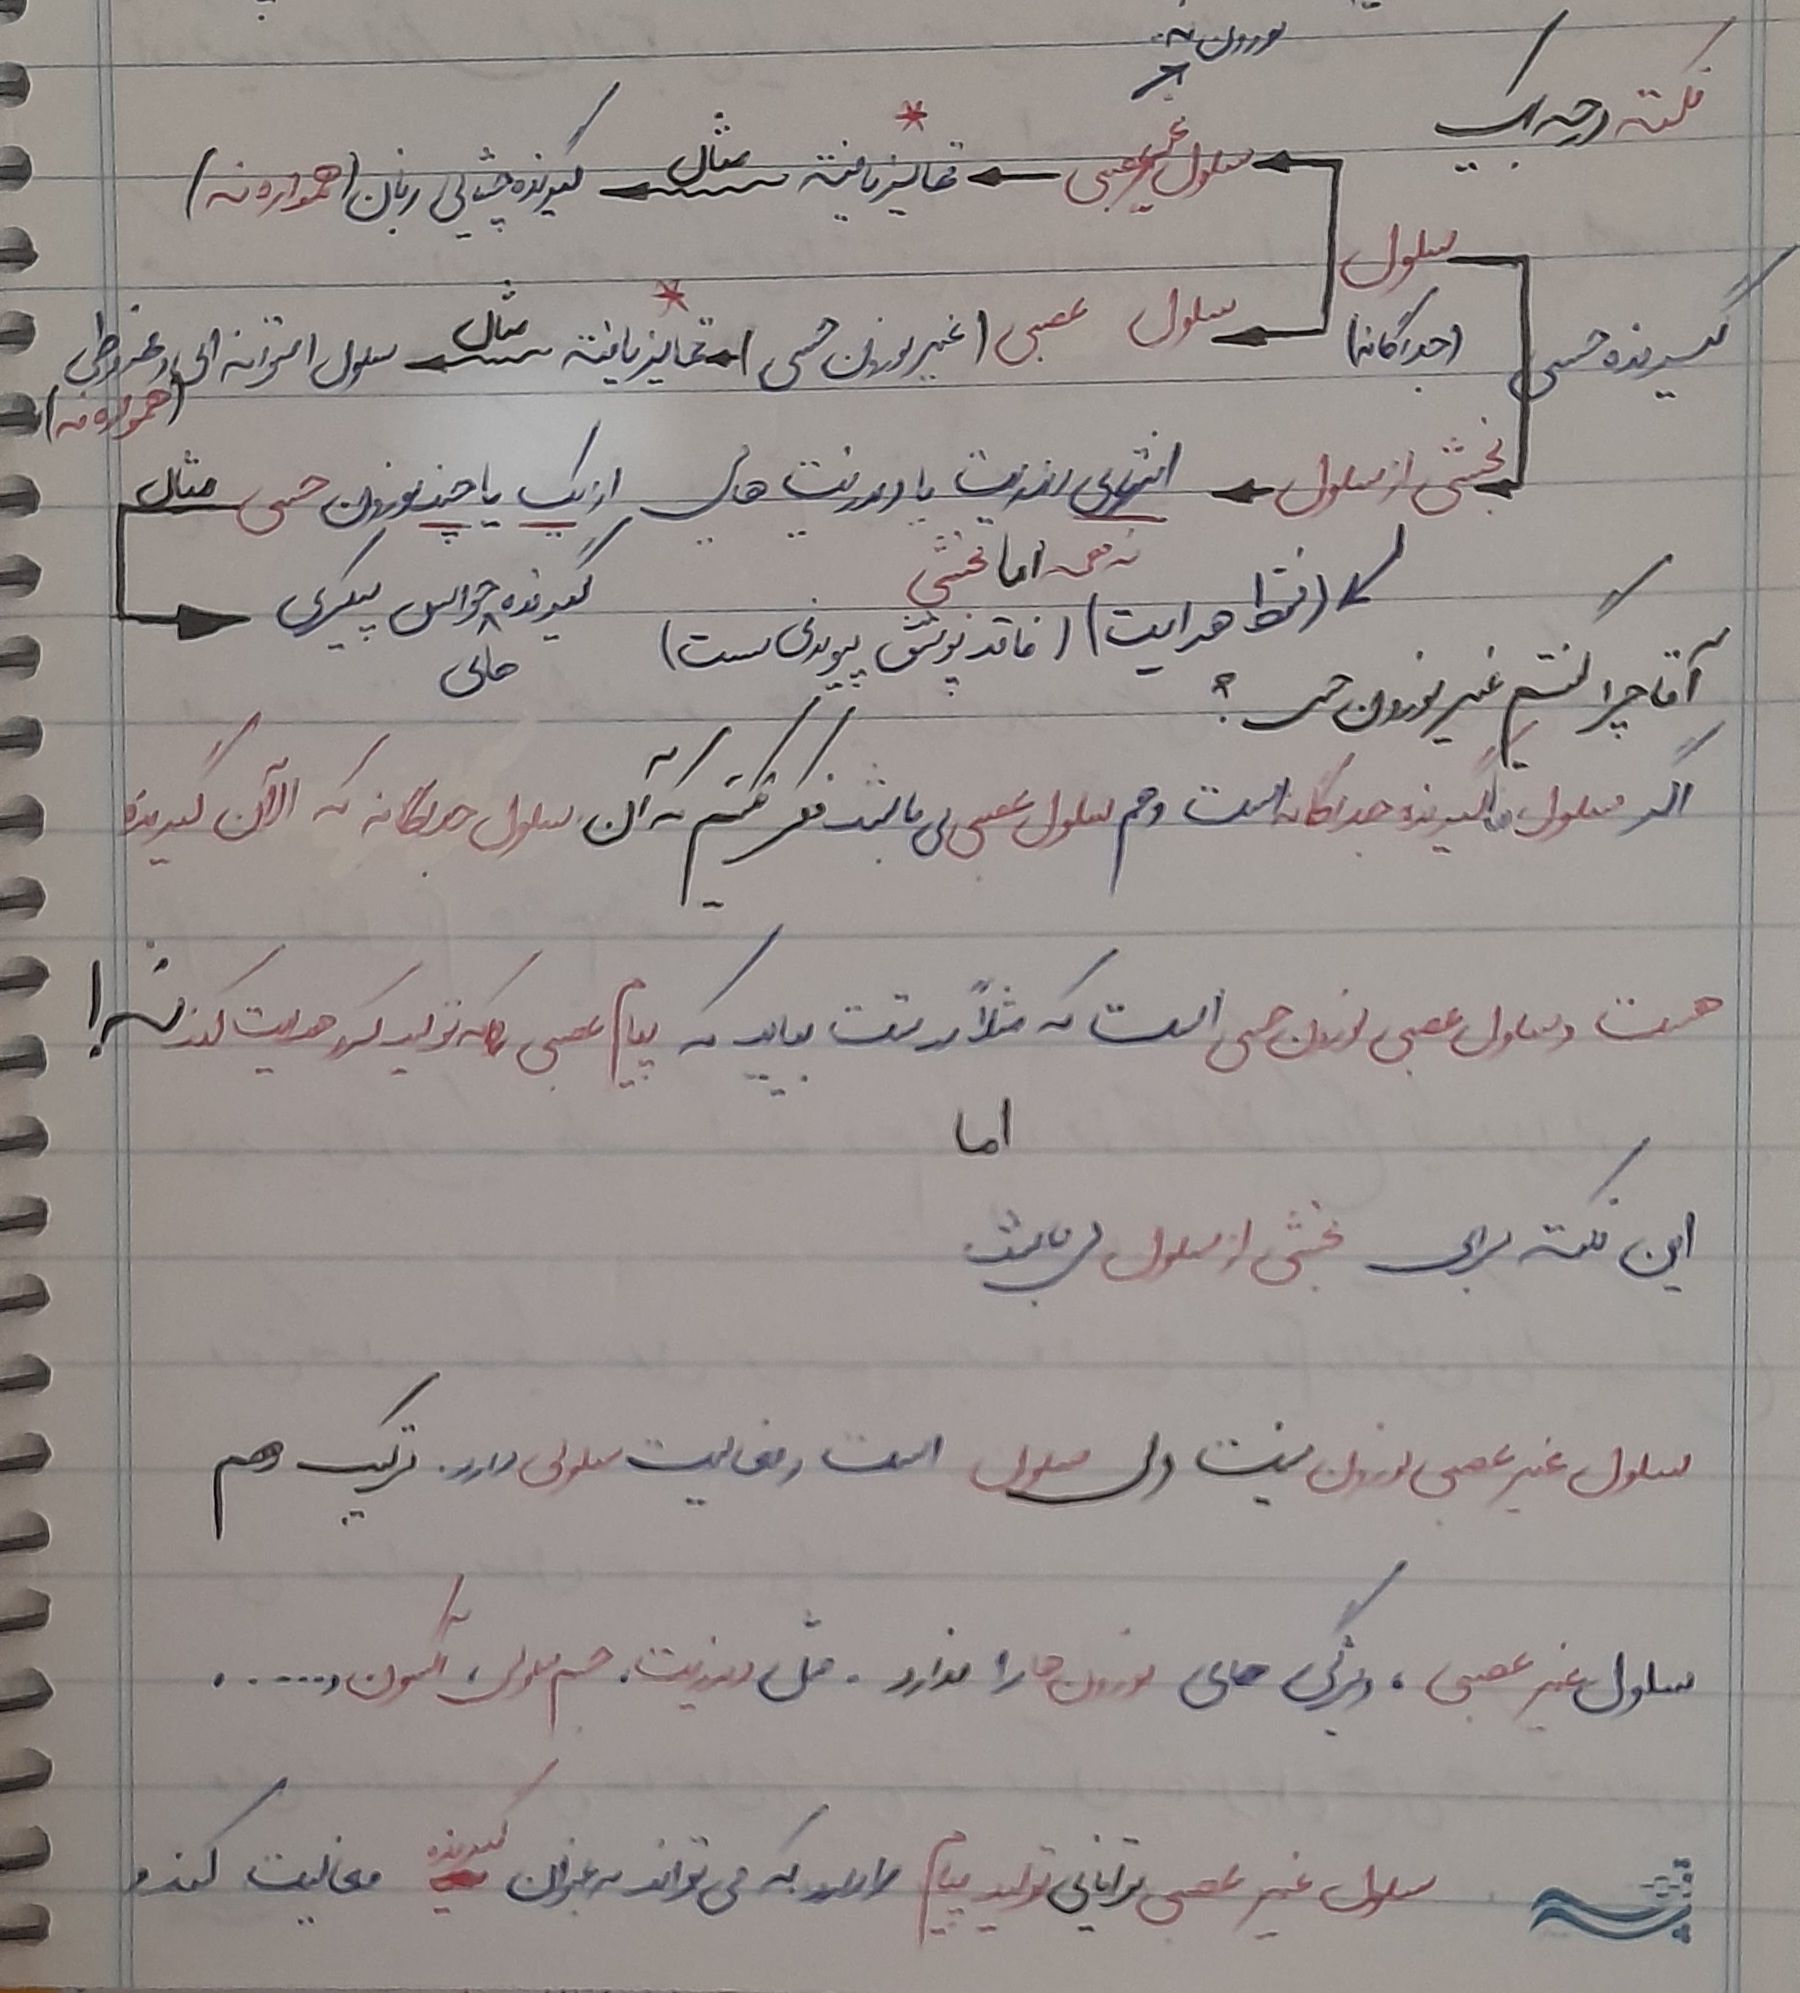 نورون نه.
نکته درجه یک
سلول غیر عصبی ← تمایز یافته * مثال ← گیرنده چشایی زبان (همواره نه)
سلول
(جداگانه)
گیرنده حسی
سلول عصبی (غیر نورون حسی) ← تمایز یافته * مثال ← سلول استوانه ای و مخروطی
(همواره نه)
بخشی از سلول ← انتهای دندریت یا دندریت های از یک یا چند نورون حسی مثال
نه همه اما بخشی
گیرنده حواس پیکری
های
(فقط هدایت) (فاقد پوشش پیوندی ست)
آقا چرا گفتیم غیر نورون حسی؟
اگر سلول ما گیرنده جداگانه است و هم سلول عصبی می باشد فکر نکنیم که آن سلول جداگانه که الآن گیرنده
هست و سلول عصبی نورون حسی است که مثلاً در تست بیاید که پیام عصبی که تولید کرد هدایت کند نه!
اما
این نکته برای بخشی از سلول می باشد
سلول غیر عصبی نورون نیست ولی سلول است و فعالیت سلولی دارد. ترکیب وهم
سلول غیر عصبی، ویژگی های نورون ها را ندارد. مثل دندریت، جسم سلولی، آکسون و.....
سلول غیر عصبی توانایی تولید پیام دارد که می تواند به عنوان گیرنده فعالیت کند و